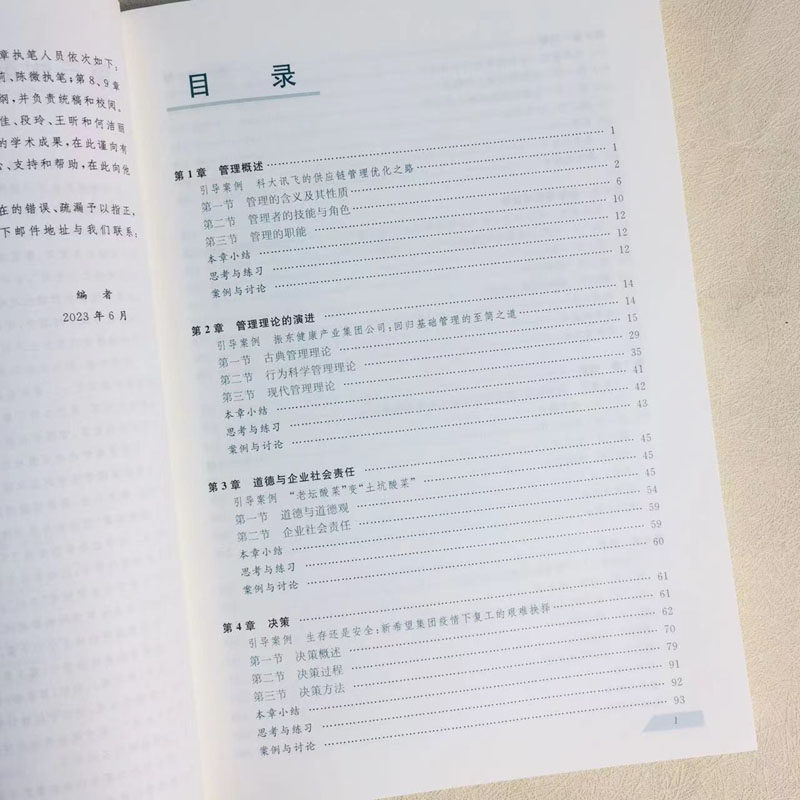 章执笔人员依次如下:
莉、陈微执笔;第8、9章
纲,并负责统稿和校阅。
佳、段玲、王昕和何洁丽
的学术成果,在此谨向有
心、支持和帮助,在此向他
在的错误、疏漏予以指正,
下邮件地址与我们联系:
编 者
2023年6月
目 录
第1章 管理概述 1
引导案例 科大讯飞的供应链管理优化之路 1
第一节 管理的含义及其性质 2
第二节 管理者的技能与角色 6
第三节 管理的职能 10
本章小结 12
思考与练习 12
案例与讨论 12
第2章 管理理论的演进 14
引导案例 振东健康产业集团公司:回归基础管理的至简之道 14
第一节 古典管理理论 15
第二节 行为科学管理理论 29
第三节 现代管理理论 35
本章小结 41
思考与练习 42
案例与讨论 43
第3章 道德与企业社会责任 45
引导案例 “老坛酸菜”变“土坑酸菜” 45
第一节 道德与道德观 45
第二节 企业社会责任 54
本章小结 59
思考与练习 59
案例与讨论 60
第4章 决策 61
引导案例 生存还是安全:新希望集团疫情下复工的艰难抉择 61
第一节 决策概述 62
第二节 决策过程 70
第三节 决策方法 79
本章小结 91
思考与练习 92
案例与讨论 93
1